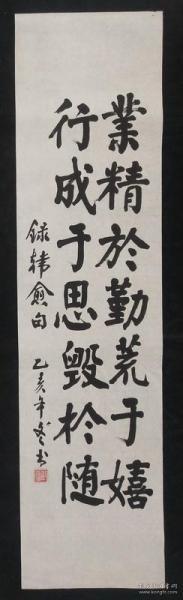 業精於勤荒于嬉
行成于思毁於随
録韩愈句
乙亥年冬书